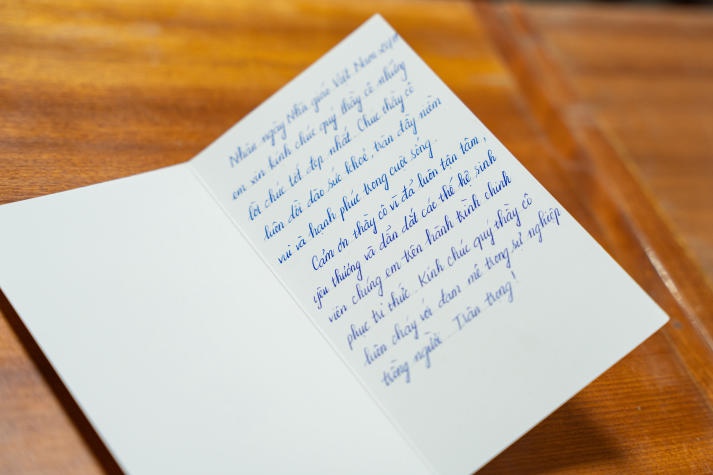 Nhân ngày Nhà giáo Việt Nam 20/11
em xin kính chúc quý thầy cô những
lời chúc tốt đẹp nhất. Chúc thầy cô
luôn dồi dào sức khoẻ, tràn đầy niềm
vui và hạnh phúc trong cuộc sống.
Cảm ơn thầy cô vì đã luôn tận tâm,
yêu thương và dẫn dắt các thế hệ sinh
viên chúng em trên hành trình chinh
phục tri thức. Kính chúc quý thầy cô
luôn cháy với đam mê trong sự nghiệp
trồng người. Trân trọng!